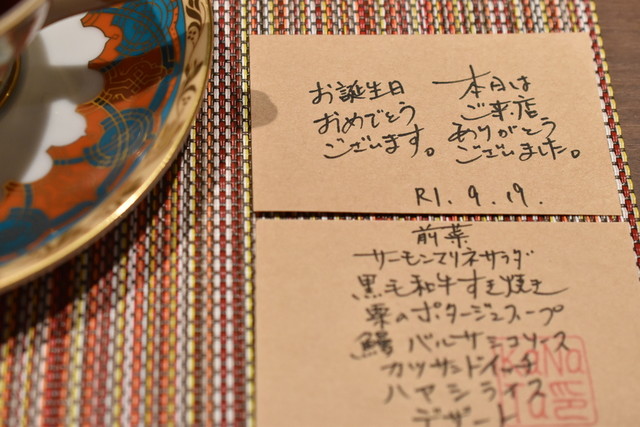 本日は
ご来店
ありがとう
ございました。
お誕生日
おめでとう
ございます。
R1.9.19.
前菜
サーモンマリネサラダ
黒毛和牛すき焼き
栗のポタージュスープ
鰆 バルサミコソース
カツサンドイッチ
ハヤシライス
デザート